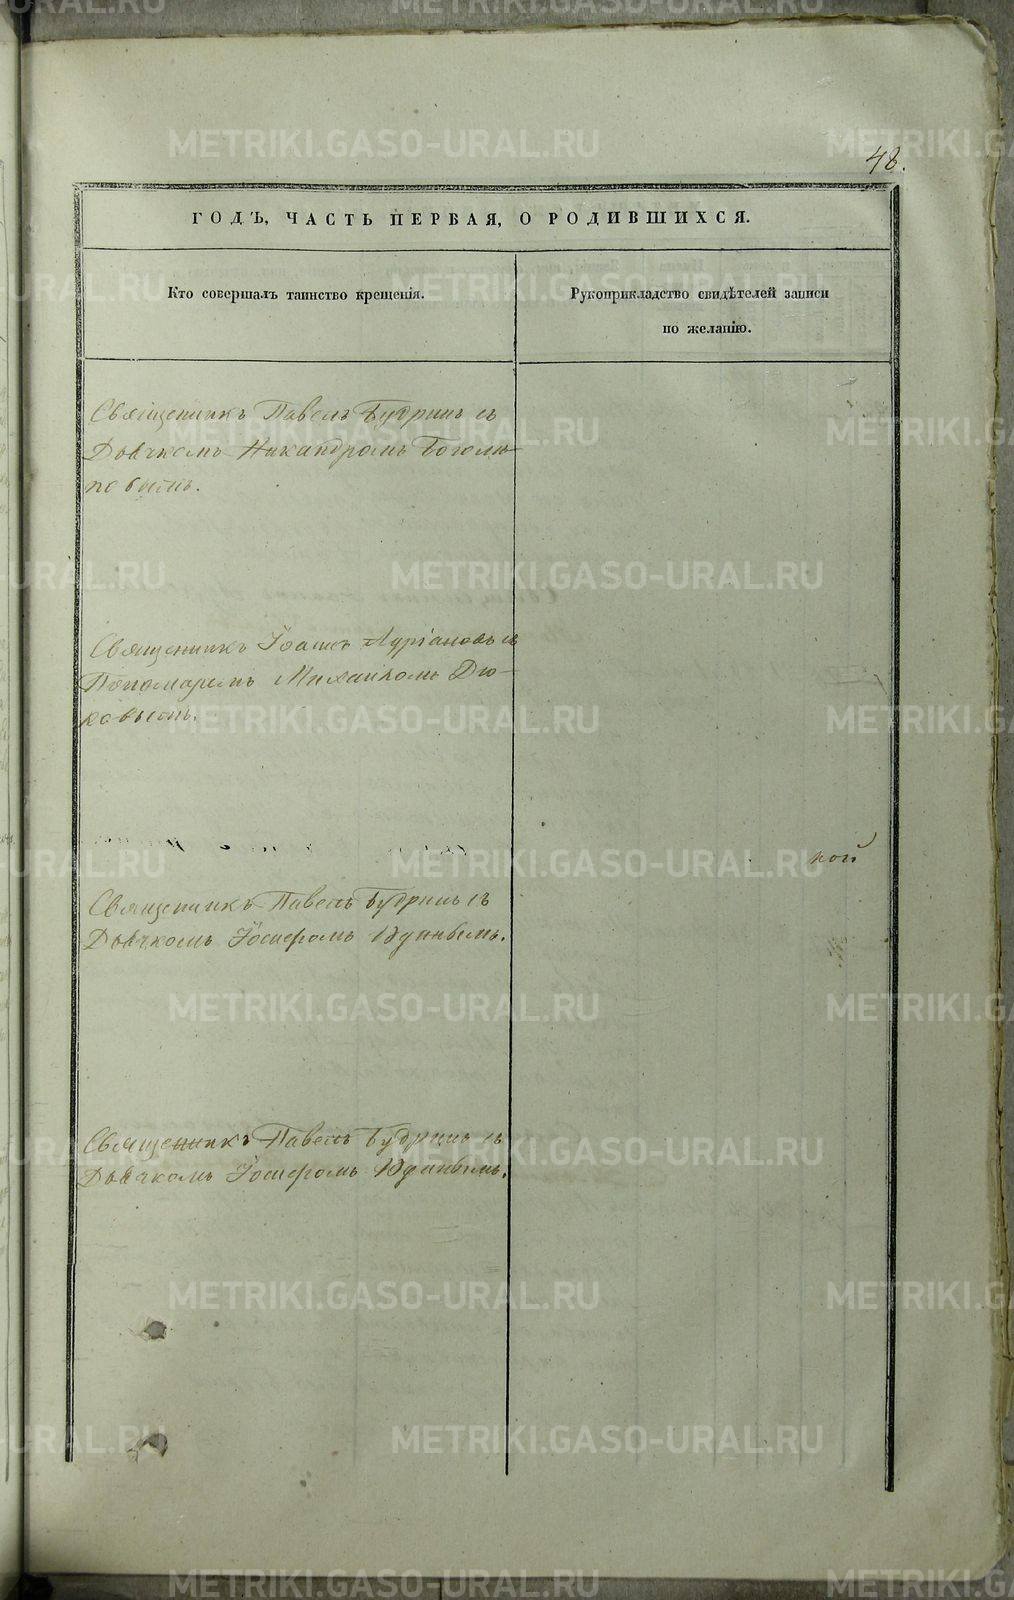 48.
ГОДЪ, ЧАСТЬ ПЕРВАЯ, О РОДИВШИХСЯ.
Кто совершалъ таинство крещенія.
Рукоприкладство свидѣтелей записи
по желанію.
Священникъ Павелъ Бубринъ съ
Дьячкомъ Никандромъ Боголю-
бовымъ.
Священникъ Іоаннъ съ
Пономаремъ Михаиломъ Дю-
ковымъ.
кой
Священникъ Павелъ Бубринъ съ
Дьячкомъ Іосифомъ Юдинымъ.
Священникъ Павелъ Бубринъ съ
Дьячкомъ Іосифомъ Юдинымъ.
METRIKI.GASO-URAL.RU